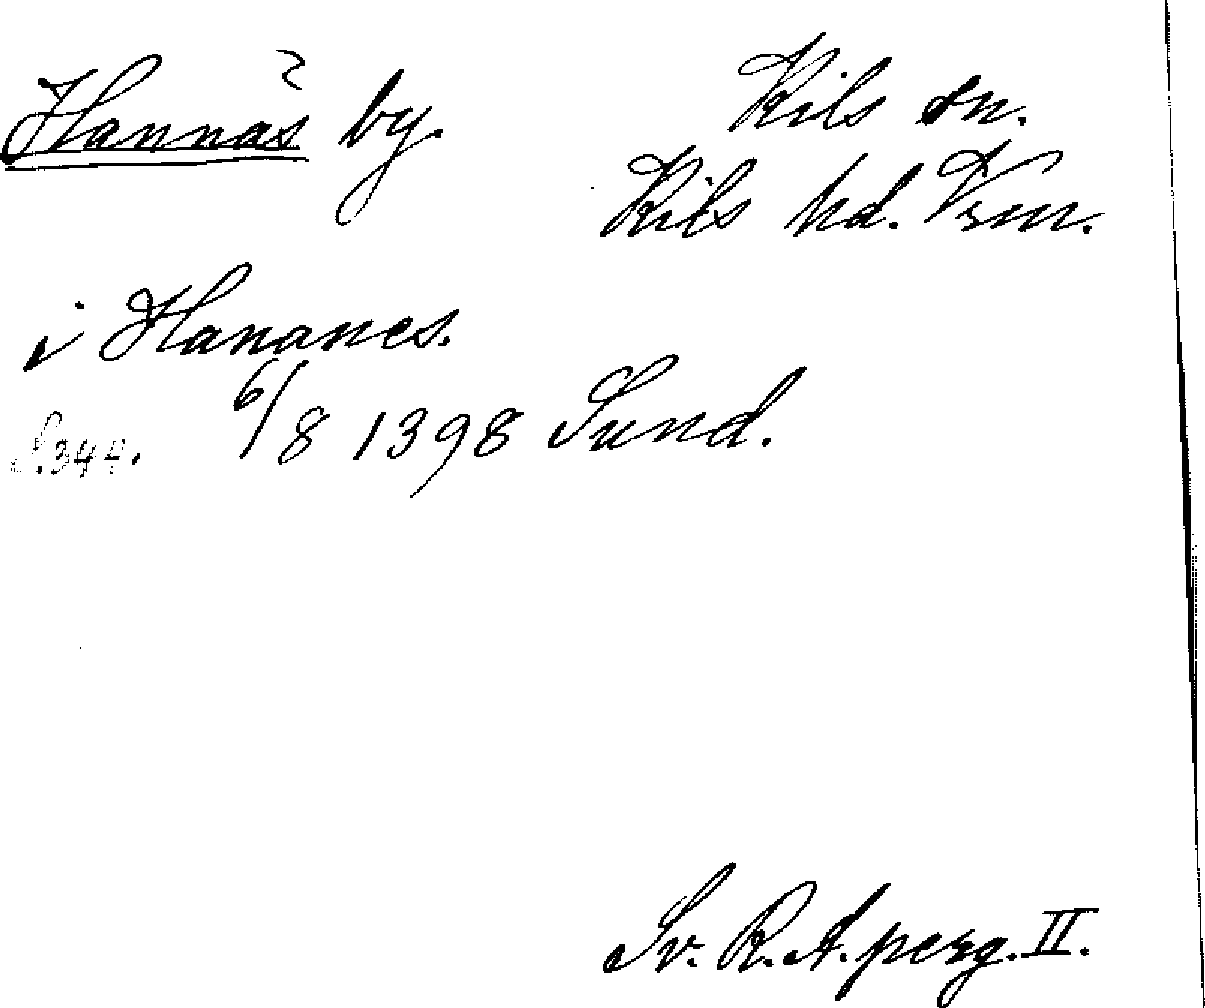 Hannäs by.
Kils sn.
Kils hd. Vrm.
i Hananes.
6/8 1398 Sund.
S. 344.
Sv. R. A. perg. II.